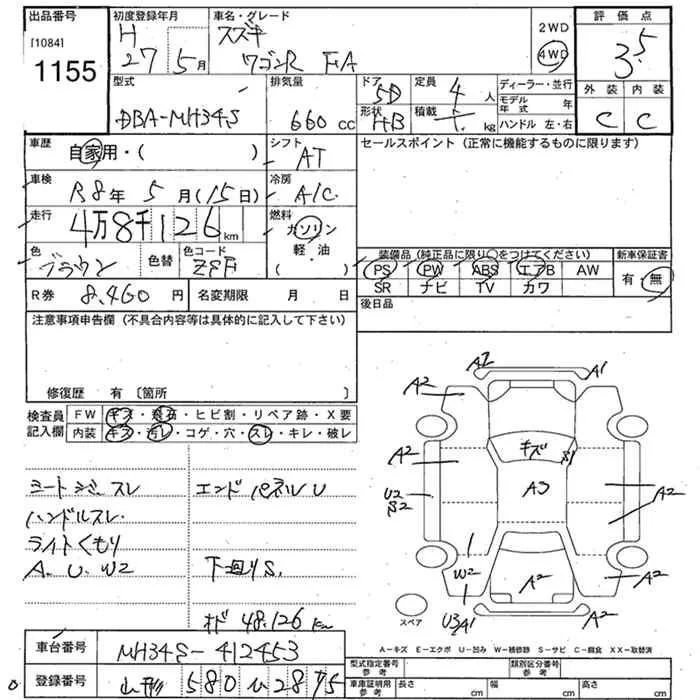 出品番号
[1084]
1155
初度登録年月
H
27 5月
車名・グレード
スズキ
ワゴンR FA
2WD
4WD
評価点
3.5
外装 内装
C C
型式
DBA-MH34S
排気量
660 cc
ドア
5D
形状
HB
定員
4人
積載
kg
ディーラー・並行
モデル年式 年
ハンドル 左・右
車歴
自家用・( )
シフト
AT
セールスポイント (正常に機能するものに限ります)
車検
R8年 5月(15日)
冷房
A/C
走行
4万8千126km
燃料
ガソリン
軽・油
( )
色
ブラウン
色替
色コード
R券 8,460円
名変期限 月 日
装備品(純正品に限り○をつけてください)
新車保証書
PS PW ABS エアB AW
SR ナビ TV カワ
有・無
後日品
注意事項申告欄 (不具合内容等は具体的に記入して下さい)
修復歴 有 〔箇所 〕
検査員記入欄
FW キズ・飛石・ヒビ割・リペア跡・X要
内装 キズ・汚レ・コゲ・穴・スレ・キレ・破レ
シートシミ スレ
ハンドルスレ
ライトくもり
A. U. W2
エンドパネルU
下回りS.
オド 48,126km
A2
A1
A2
キズ
S1
A2
A3
U2
S2
A2
W2
A2
A2
U3A1
A2
スペア
A-キズ E-エクボ U-凹み W-補修跡 S-サビ C-腐食 XX-取替済
車台番号 MH34S-412453
登録番号 山形 580 い 2875
型式指定番号
参考
類別区分番号
参考
車庫証明用
参考
長さ cm
幅 cm
高さ cm